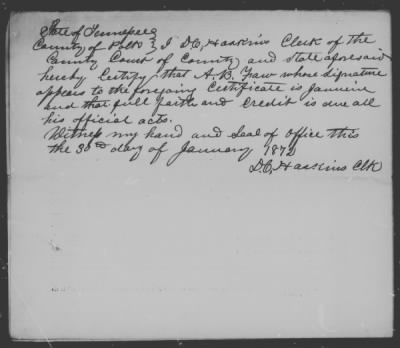 State of Tennessee }
County of Polk } I D.C. Haskins Clerk of the
County Court of County and State aforesaid
hereby Certify that A. B. whose signature
appears to the foregoing Certificate is
and that full faith and Credit is due all
his official acts.
Witness my hand and Seal of Office this
the 30th day of January 1872
D.C. Haskins Clk